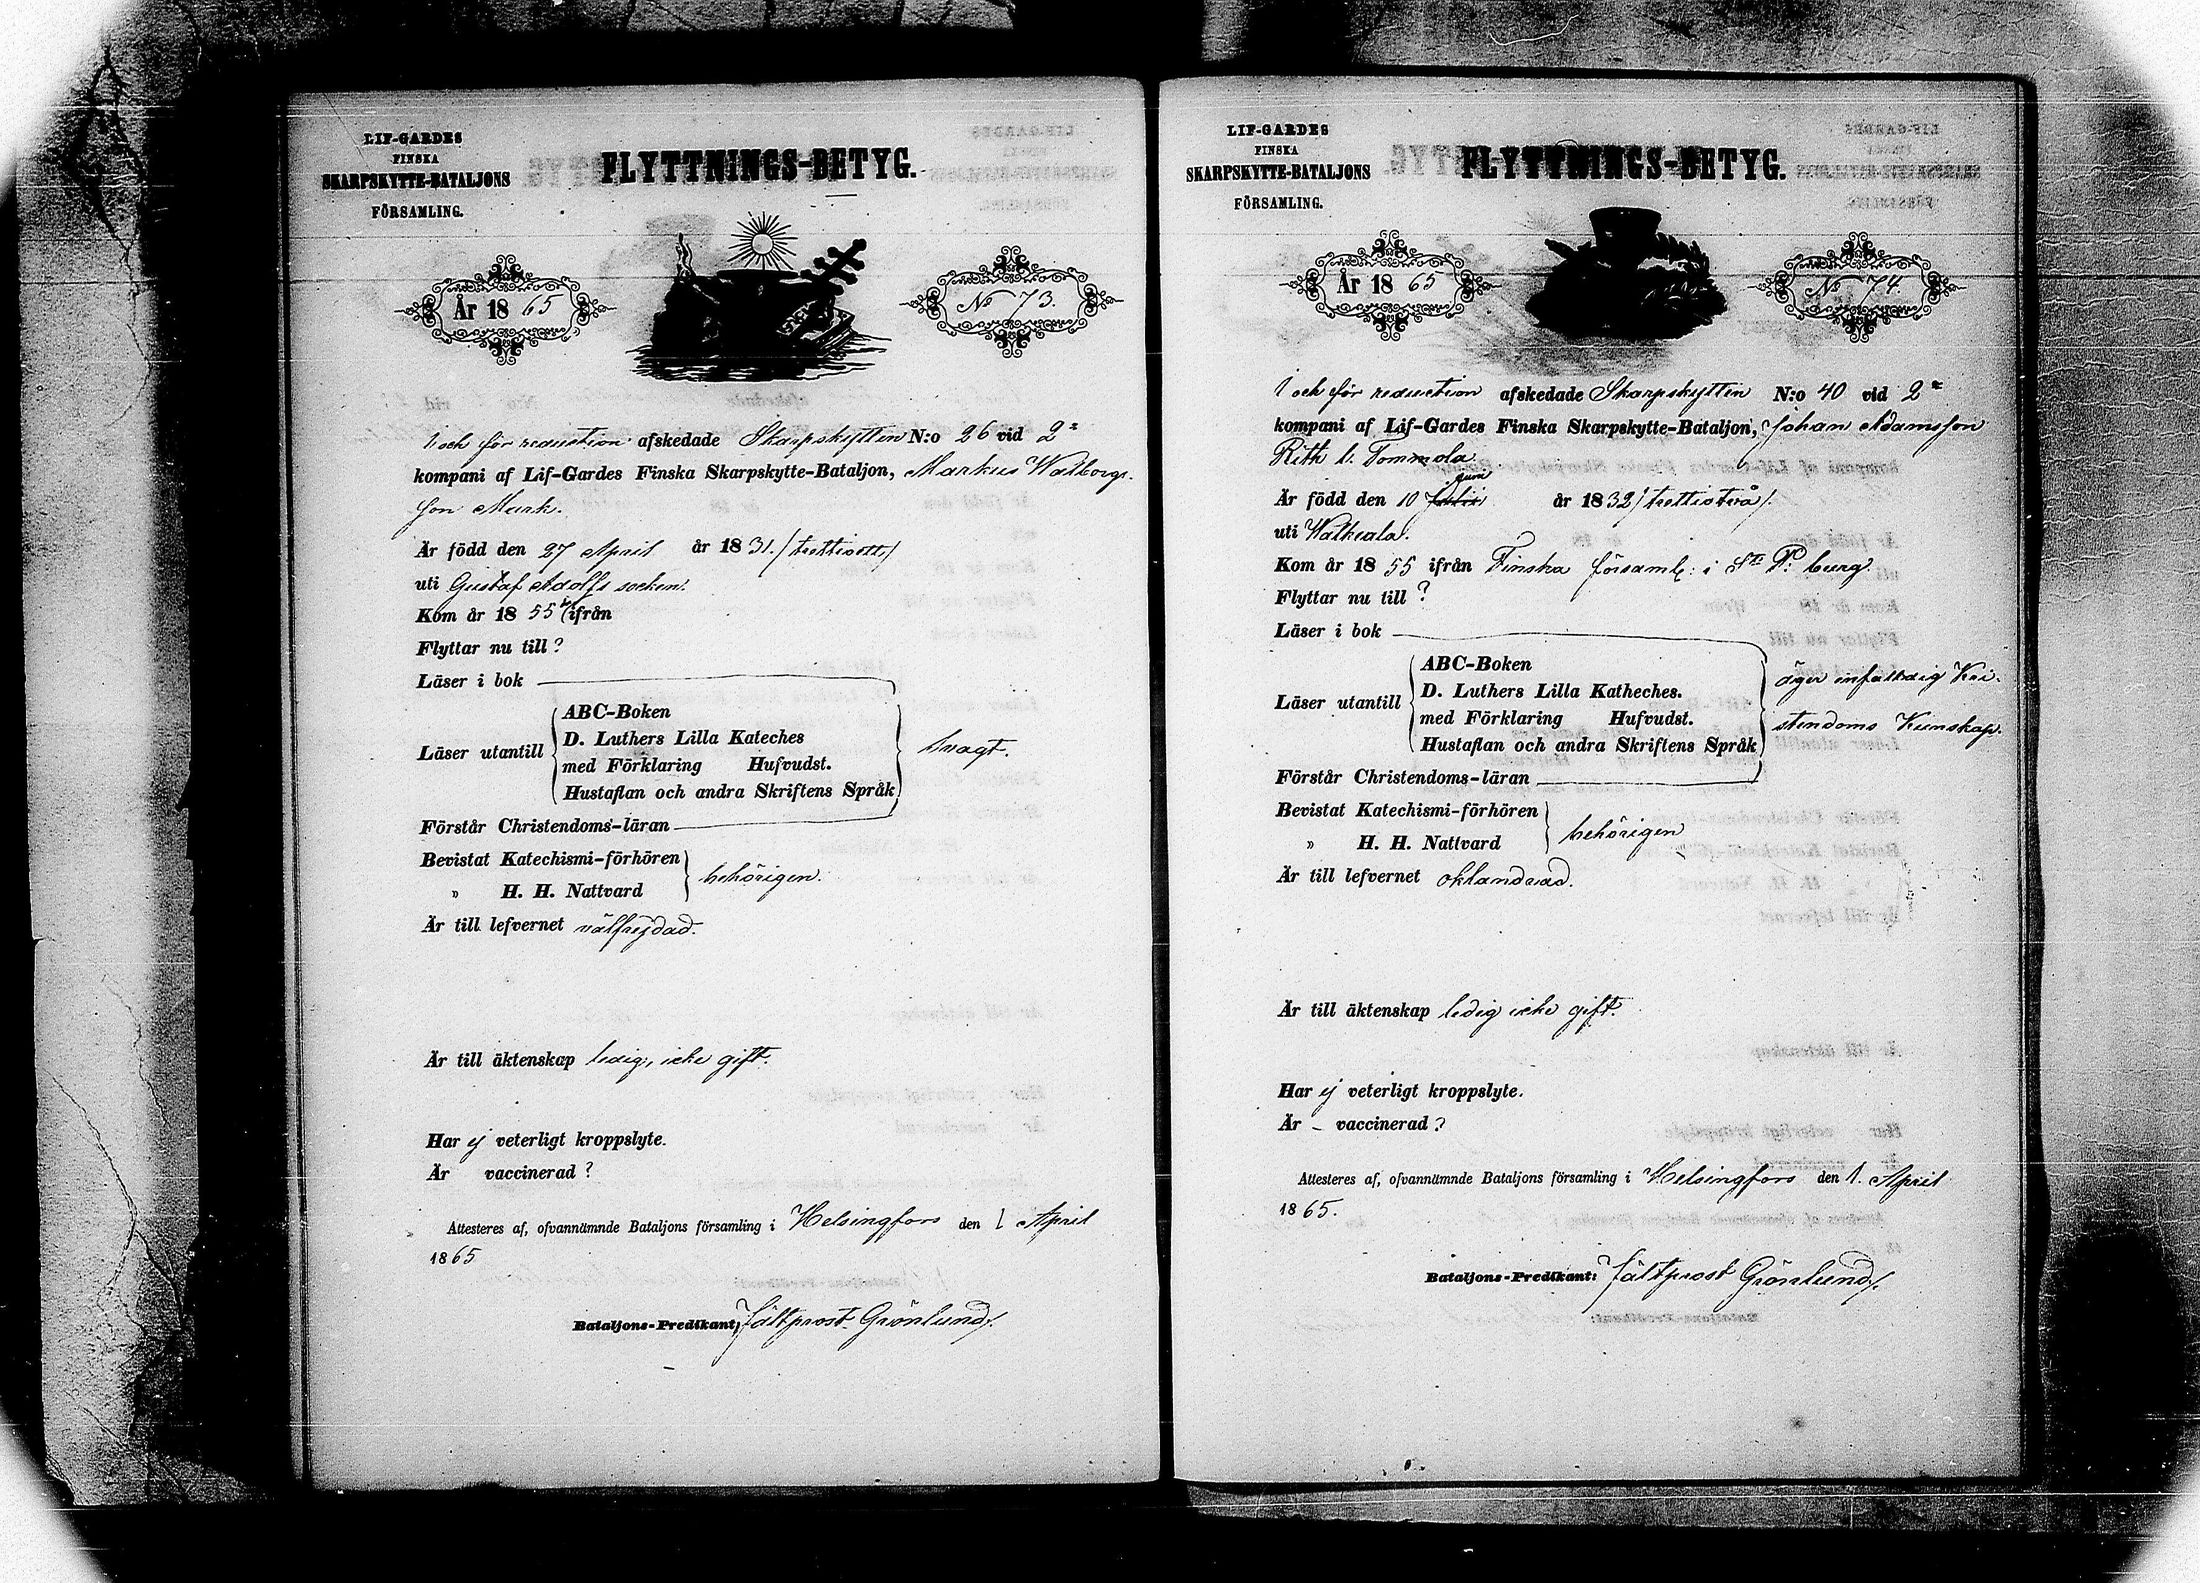 LIF-GARDES
FINSKA
SKARPSKYTTE-BATALJONS
FÖRSAMLING.
FLYTTNINGS-BETYG.
År 1865
No 73.
I och för reduction afskedade Skarpskytten N:o 26 vid 2:
kompani af Lif-Gardes Finska Skarpskytte-Bataljon, Markus Walborgs-
son Murk.
Är född den 27 April år 1831. /trettioett/
uti Gustaf Adolfs socken.
Kom år 1855 ifrån
Flyttar nu till?
Läser i bok
Läser utantill
ABC-Boken
D. Luthers Lilla Kateches
med Förklaring Hufvudst.
Hustaflan och andra Skriftens Språk
svagt.
Förstår Christendoms-läran
Bevistat Katechismi-förhören
" H. H. Nattvard
behörigen.
Är till lefvernet välfrejdad.
Är till äktenskap ledig, icke gift.
Har ej veterligt kroppslyte.
Är vaccinerad?
Attesteras af, ofvannämnde Bataljons församling i Helsingfors den 1 April
1865
Bataljons-Predikant: Fältprost Grönlund/.
LIF-GARDES
FINSKA
SKARPSKYTTE-BATALJONS
FÖRSAMLING.
FLYTTNINGS-BETYG.
År 1865
No 74.
I och för reduction afskedade Skarpskytten N:o 40 vid 2:
kompani af Lif-Gardes Finska Skarpskytte-Bataljon, Johan Adamsson
Rith l. Tommola
Är född den 10 Julii Juni år 1832 /trettiotvå/.
uti Walkeala.
Kom år 1855 ifrån Finska församl: i St P:burg.
Flyttar nu till?
Läser i bok
Läser utantill
ABC-Boken
D. Luthers Lilla Katheches.
med Förklaring Hufvudst.
Hustaflan och andra Skriftens Språk
äger enfaldig Kri-
stendoms Kunskap.
Förstår Christendoms-läran
Bevistat Katechismi-förhören
" H. H. Nattvard
behörigen
Är till lefvernet oklandrad.
Är till äktenskap ledig icke gift.
Har ej veterligt kroppslyte.
Är – vaccinerad?
Attesteres af, ofvannämnde Bataljons församling i Helsingfors den 1. April
1865.
Bataljons-Predikant: Fältprost Grönlund/.